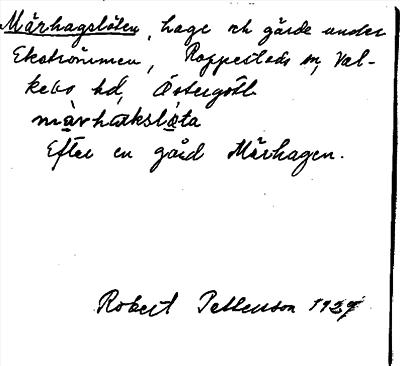 Märhagslöten, hage och gärde under
Ekströmmen, Rappestads sn, Val-
kebo hd, Östergötl.
märhakslöta
Efter en gård Märhagen.
Robert Pettersson 1927